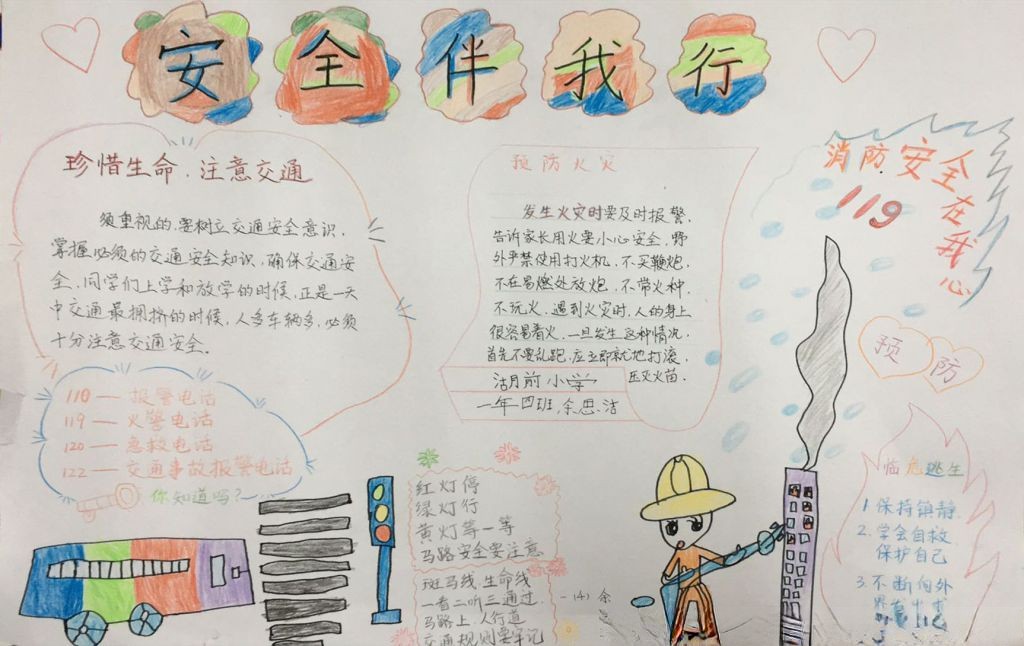 安全伴我行
珍惜生命.注意交通
须重视的.要树立交通安全意识.
掌握必须的交通安全知识.确保交通安
全.同学们上学和放学的时候.正是一天
中交通最拥挤的时候.人多车辆多.必须
十分注意交通安全。
110 — 报警电话
119 — 火警电话
120 — 急救电话
122 — 交通事故报警电话
你知道吗?
预防火灾
发生火灾时要及时报警.
告诉家长用火要小心安全.野
外严禁使用打火机.不买鞭炮.
不在易燃处放炮.不带火种.
不玩火.遇到火灾时.人的身上
很容易着火.一旦发生这种情况.
首先不要乱跑.应立即就地打滚.
压灭火苗.
沽月前小学
一年四班.余思洁
红灯停
绿灯行
黄灯等一等
马路安全要注意
斑马线.生命线
一看二听三通过.
马路上.人行道
交通规则要牢记
(4) 余
消防安全在我心
119
预防
临危逃生
1.保持镇静.
2.学会自救.
保护自己
3.不断向外